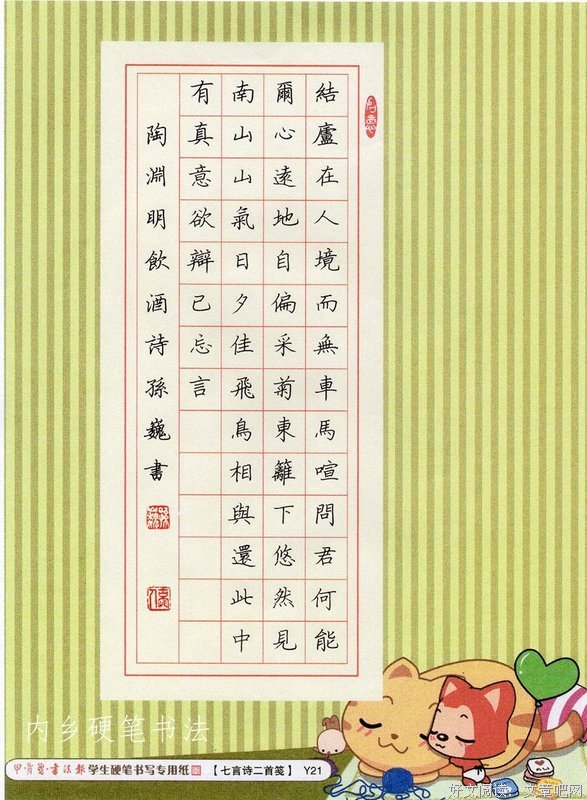 結廬在人境而無車馬喧問君何能
爾心遠地自偏采菊東籬下悠然見
南山山氣日夕佳飛鳥相與還此中
有真意欲辯已忘言
陶淵明飲酒詩孫巍書
内乡硬笔书法
甲骨藝·書法報 学生硬笔书写专用纸
【七言诗二首笺】 Y21
好文阅读:文章吧网